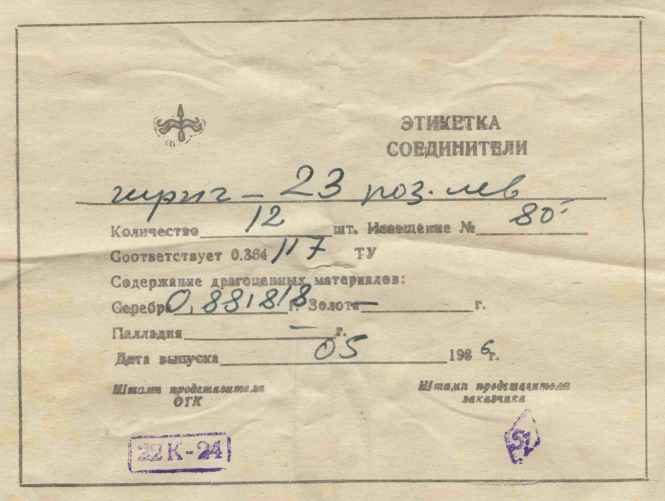 ЭТИКЕТКА
СОЕДИНИТЕЛИ
шриг - 23 роз. лев
Количество 12 шт. Извещение № 80
Соответствует 0.364 117 ТУ
Содержание драгоценных материалов:
Серебра 0,881818 г. Золота — г.
Палладия — г.
Дата выпуска 05 1986г.
Штамп представителя ОТК
Штамп представителя заказчика
22К-24
51